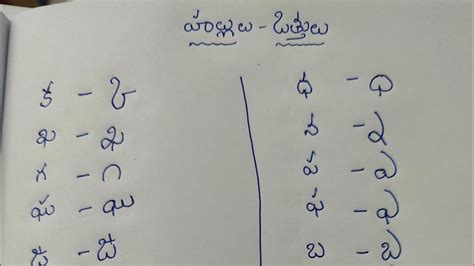 హల్లులు - ఒత్తులు
క - ్క
ఖ - ్ఖ
గ - ్గ
ఘ - ్ఘ
చ - ్చ
ధ - ్ధ
న - ్న
ప - ్ప
ఫ - ్ఫ
బ - ్బ